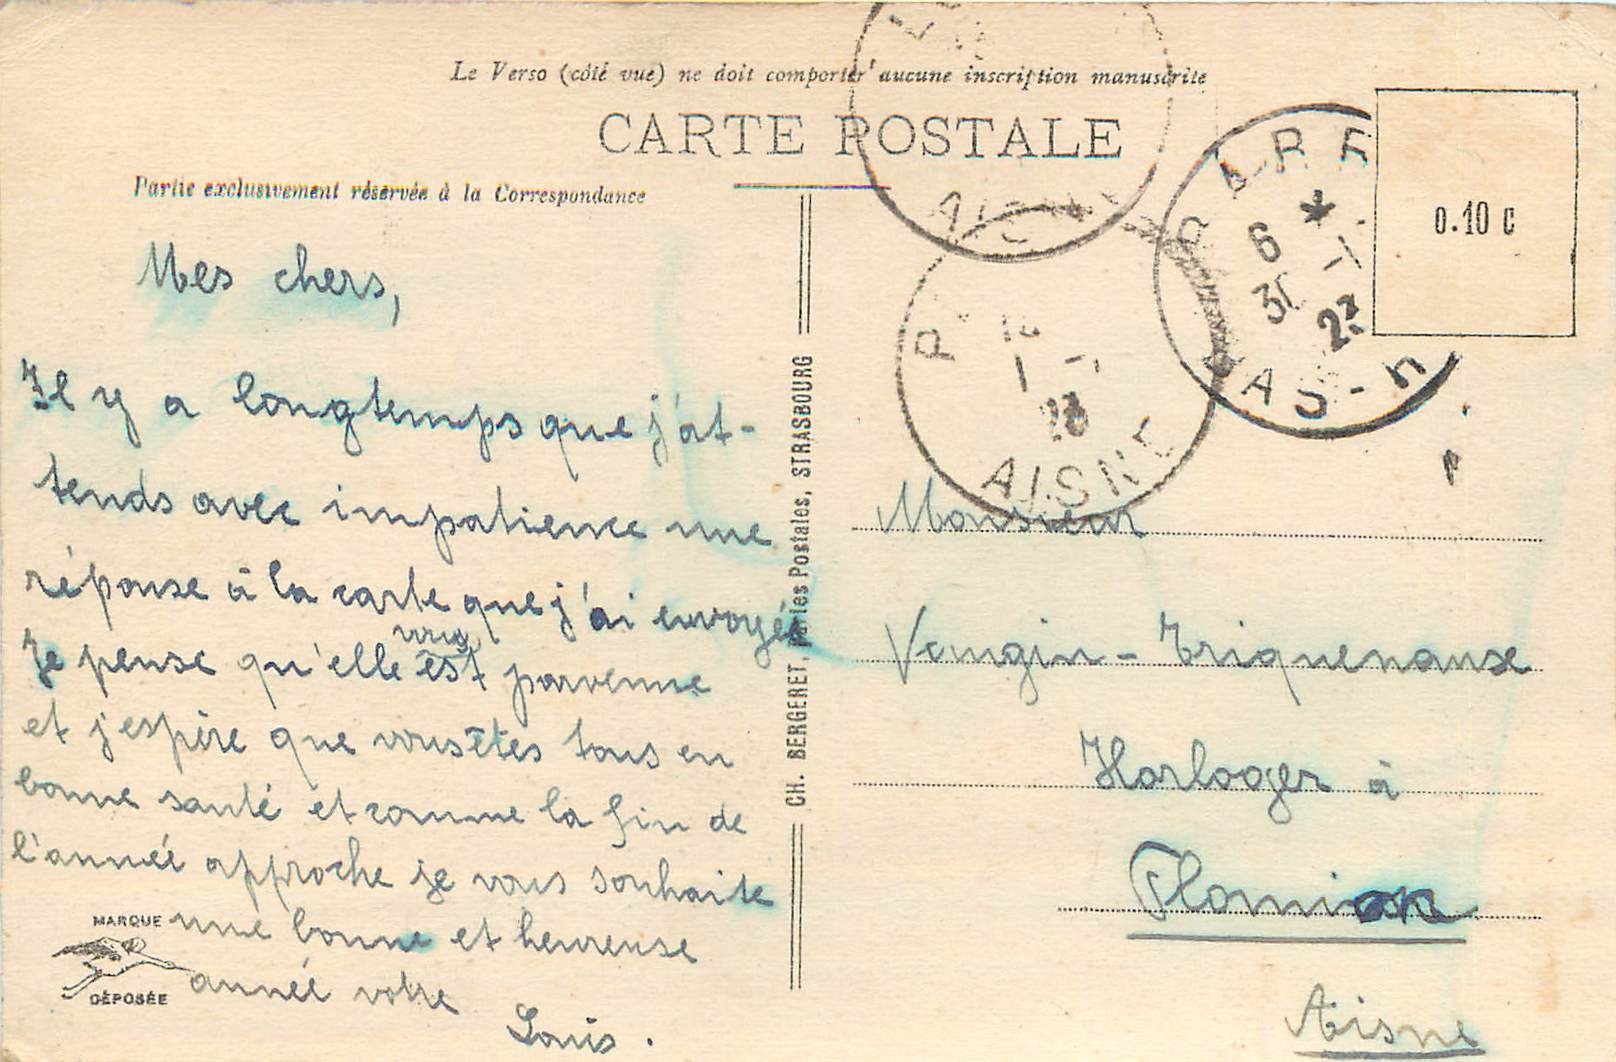 Le Verso (côté vue) ne doit comporter aucune inscription manuscrite
CARTE POSTALE
Partie exclusivement réservée à la Correspondance
Mes chers,
Il y a longtemps que j'at-
tends avec impatience une
réponse à la carte que j'ai envoyée
Je pense qu'elle vous est parvenue
et j'espère que vous êtes tous en
bonne santé et comme la fin de
l'année approche je vous souhaite
une bonne et heureuse
année votre
Louis.
MARQUE
DÉPOSÉE
CH. BERGERET, Cartes Postales, STRASBOURG
AISNE
6 *
31 -1-
23
BAS-R
1 -
23
AISNE
0.10 c
Monsieur
Vaugin - Triquenause
Horloger à
Plomion
Aisne